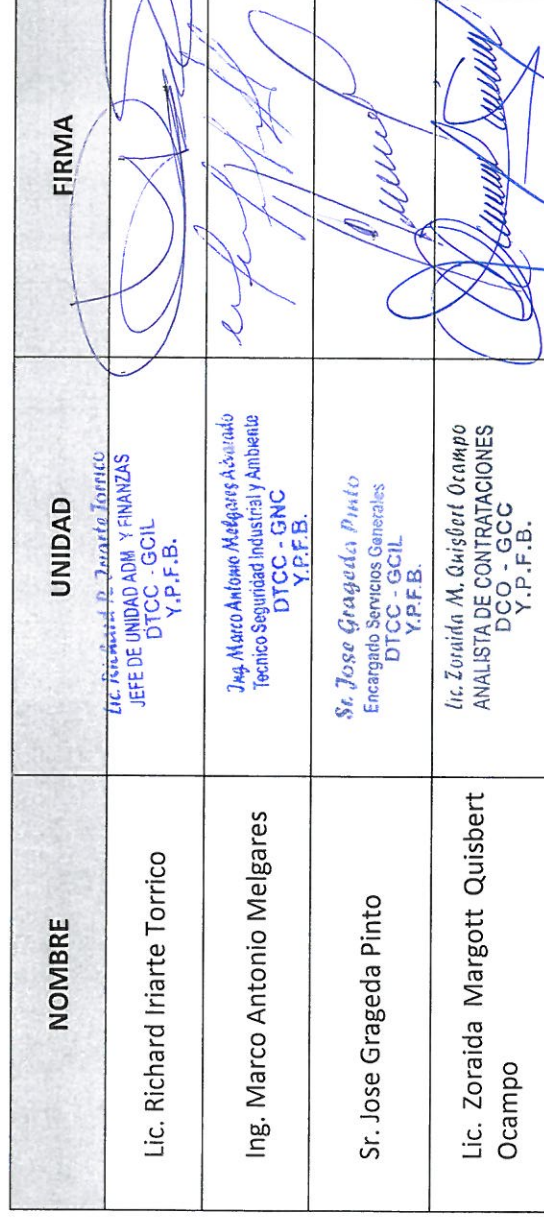 NOMBRE UNIDAD FIRMA
Lic. Richard Iriarte Torrico
Lic. Richard R. Iriarte Torrico
JEFE DE UNIDAD ADM Y FINANZAS
DTCC - GCIL
Y.P.F.B.
Ing. Marco Antonio Melgares
Ing. Marco Antonio Melgares Alvarado
Tecnico Seguridad Industrial y Ambiente
DTCC - GNC
Y.P.F.B.
Sr. Jose Grageda Pinto
Sr. Jose Grageda Pinto
Encargado Servicios Generales
DTCC - GCIL
Y.P.F.B.
Lic. Zoraida Margott Quisbert
Ocampo
Lic. Zoraida M. Quisbert Ocampo
ANALISTA DE CONTRATACIONES
DCO - GCC
Y.P.F.B.